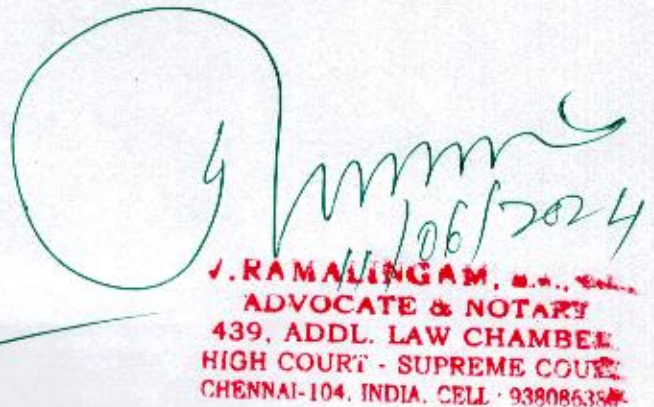 11/06/2024
V. RAMALINGAM, B.A.,
ADVOCATE & NOTARY
439, ADDL. LAW CHAMBER
HIGH COURT - SUPREME COURT
CHENNAI-104. INDIA. CELL : 93808638